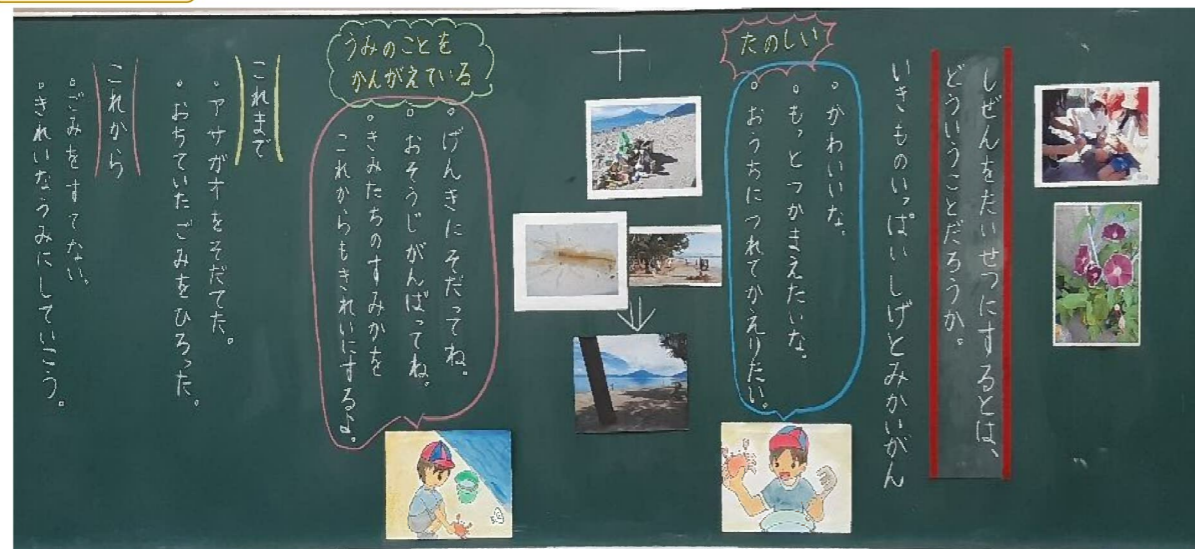 しぜんをたいせつにするとは、
どういうことだろうか。
いきものいっぱい しげとみかいがん
たのしい
。かわいいな。
。もっとつかまえたいな。
。おうちにつれてかえりたい。
うみのことを
かんがえている
。げんきにそだってね。
。おそうじがんばってね。
。きみたちのすみかを
これからもきれいにするよ。
これまで
。アサガオをそだてた。
。おちていたごみをひろった。
これから
。ごみをすてない。
。きれいなうみにしていこう。